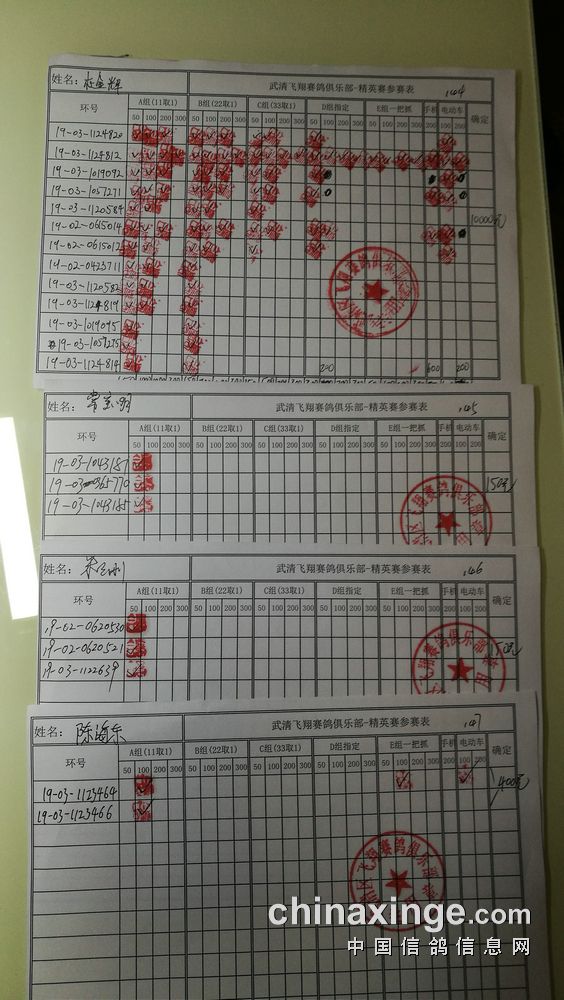 姓名: 武清飞翔赛鸽俱乐部-精英赛参赛表 144
环号 A组(11取1) B组(22取1) C组(33取1) D组指定 E组一把抓 手机 电动车 确定
50 100 200 300 50 100 200 300 50 100 200 300 50 100 200 300 50 100 200 300 200 100 200
19-03-1124820
19-03-1124812
19-03-1019092
19-03-1057271
19-03-1120584
19-02-0615014 10000元
19-02-0615012
19-02-0423711
19-03-1120582
19-03-1124819
19-03-1019095
19-03-1057275
19-03-1124814 200 600 200
姓名: 武清飞翔赛鸽俱乐部-精英赛参赛表 145
环号 A组(11取1) B组(22取1) C组(33取1) D组指定 E组一把抓 手机 电动车 确定
50 100 200 300 50 100 200 300 50 100 200 300 50 100 200 300 50 100 200 300 200 100 200
19-03-1043187
19-03-065770 150元
19-03-1043185
姓名: 武清飞翔赛鸽俱乐部-精英赛参赛表 146
环号 A组(11取1) B组(22取1) C组(33取1) D组指定 E组一把抓 手机 电动车 确定
50 100 200 300 50 100 200 300 50 100 200 300 50 100 200 300 50 100 200 300 200 100 200
19-02-0620530
19-02-0620521
19-03-1122639
姓名: 陈海东 武清飞翔赛鸽俱乐部-精英赛参赛表 147
环号 A组(11取1) B组(22取1) C组(33取1) D组指定 E组一把抓 手机 电动车 确定
50 100 200 300 50 100 200 300 50 100 200 300 50 100 200 300 50 100 200 300 200 100 200
19-03-1123464 400元
19-03-1123466
chinaxinge.com
中国信鸽信息网